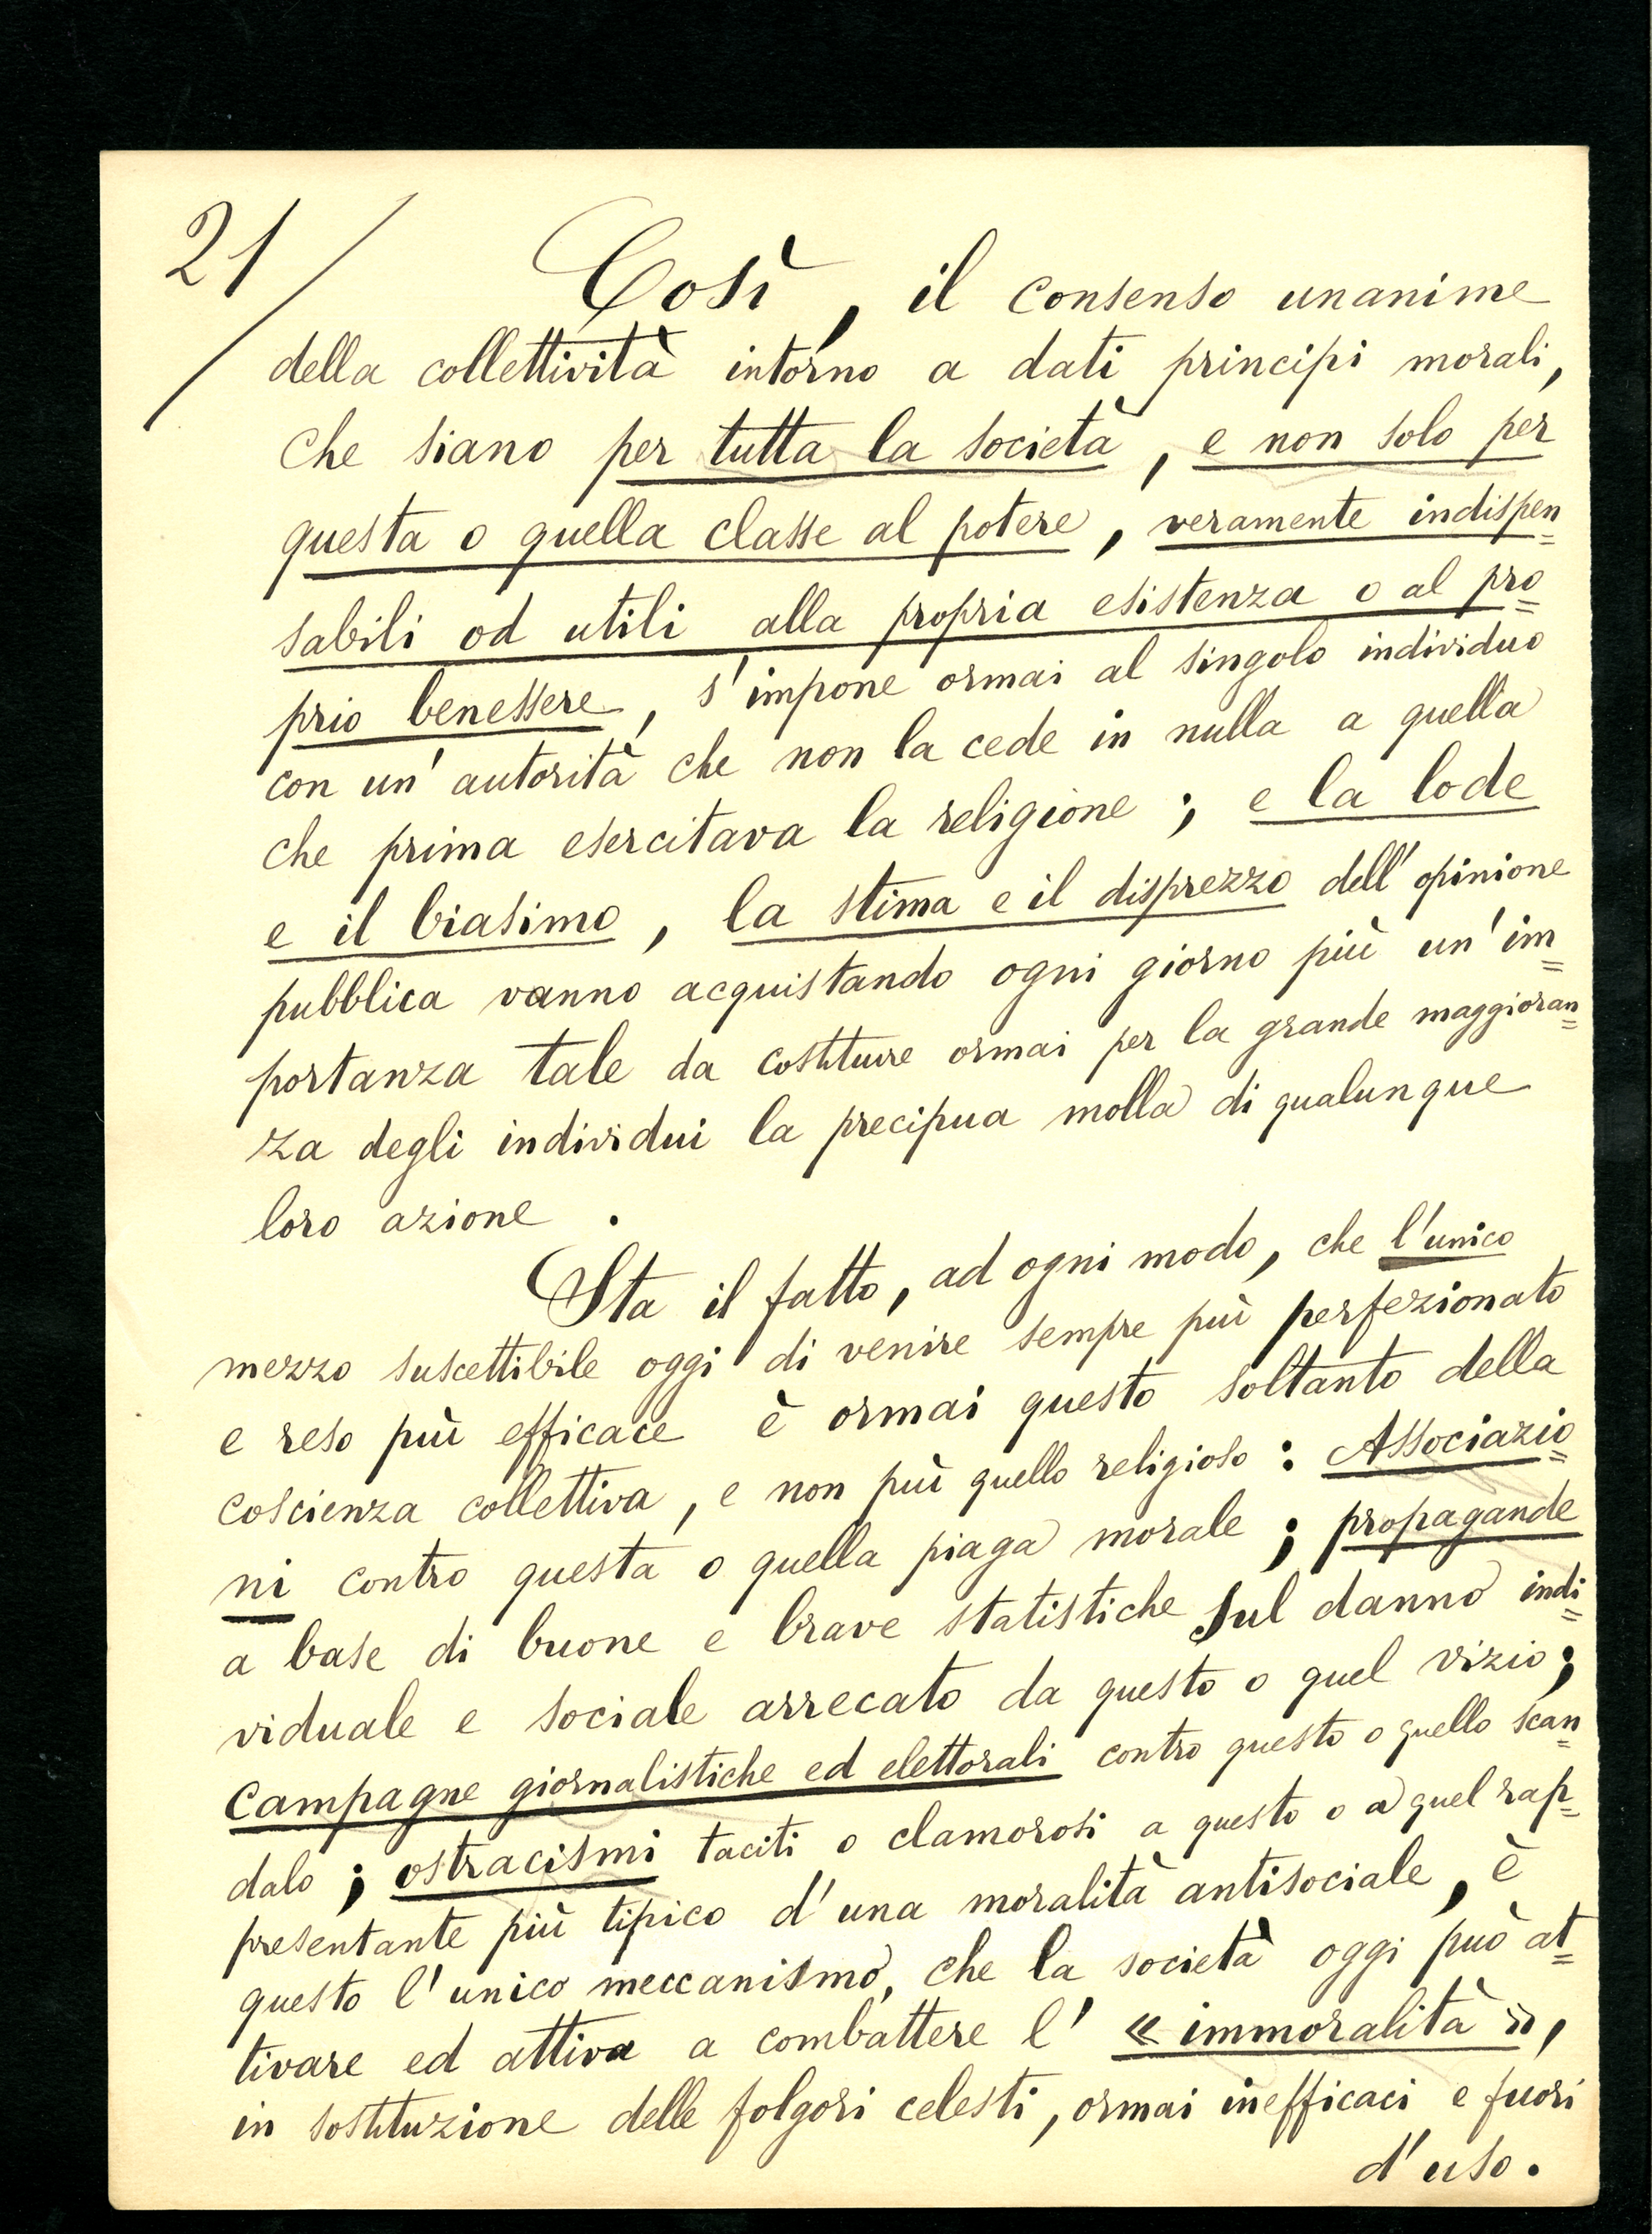 21/
Così, il consenso unanime
della collettività intorno a dati principi morali,
che siano per tutta la società, e non solo per
questa o quella classe al potere, veramente indispen=
sabili od utili alla propria esistenza o al pro=
prio benessere, s'impone ormai al singolo individuo
con un'autorità che non la cede in nulla a quella
che prima esercitava la religione; e la lode
e il biasimo, la stima e il disprezzo dell'opinione
pubblica vanno acquistando ogni giorno più un'im=
portanza tale da costituire ormai per la grande maggioran=
za degli individui la precipua molla di qualunque
loro azione.
Sta il fatto, ad ogni modo, che l'unico
mezzo suscettibile oggi di venire sempre più perfezionato
e reso più efficace è ormai questo soltanto della
coscienza collettiva, e non più quello religioso: Associazio=
ni contro questa o quella piaga morale; propagande
a base di buone e brave statistiche sul danno indi=
viduale e sociale arrecato da questo o quel vizio;
campagne giornalistiche ed elettorali contro questo o quello scan=
dalo; ostracismi taciti o clamorosi a questo o a quel rap=
presentante più tipico d'una moralità antisociale, è
questo l'unico meccanismo, che la società oggi può at=
tivare ed attiva a combattere l'« immoralità »,
in sostituzione delle folgori celesti, ormai inefficaci e fuori
d'uso.